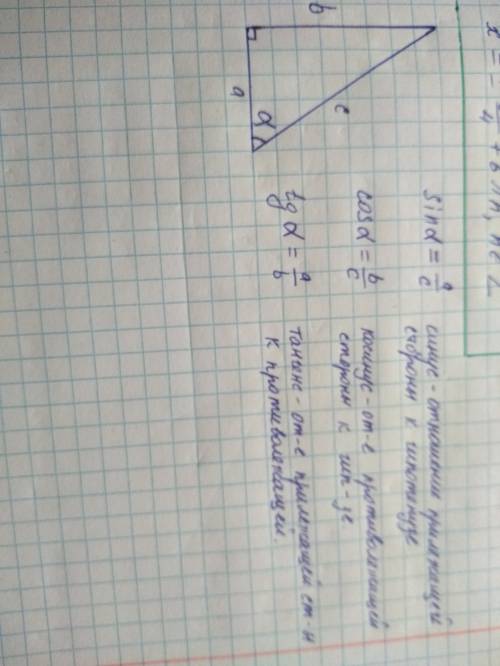 x = - /4 + 6πn, n∈Z
b
c
a
α
sinα = a/c
синус - отношение прилежащей
стороны к гипотенузе
cosα = b/c
косинус - от-е противолежащей
стороны к гип-зе
tgα = a/b
тангенс - от-е прилежащей ст-н
к противолежащей.